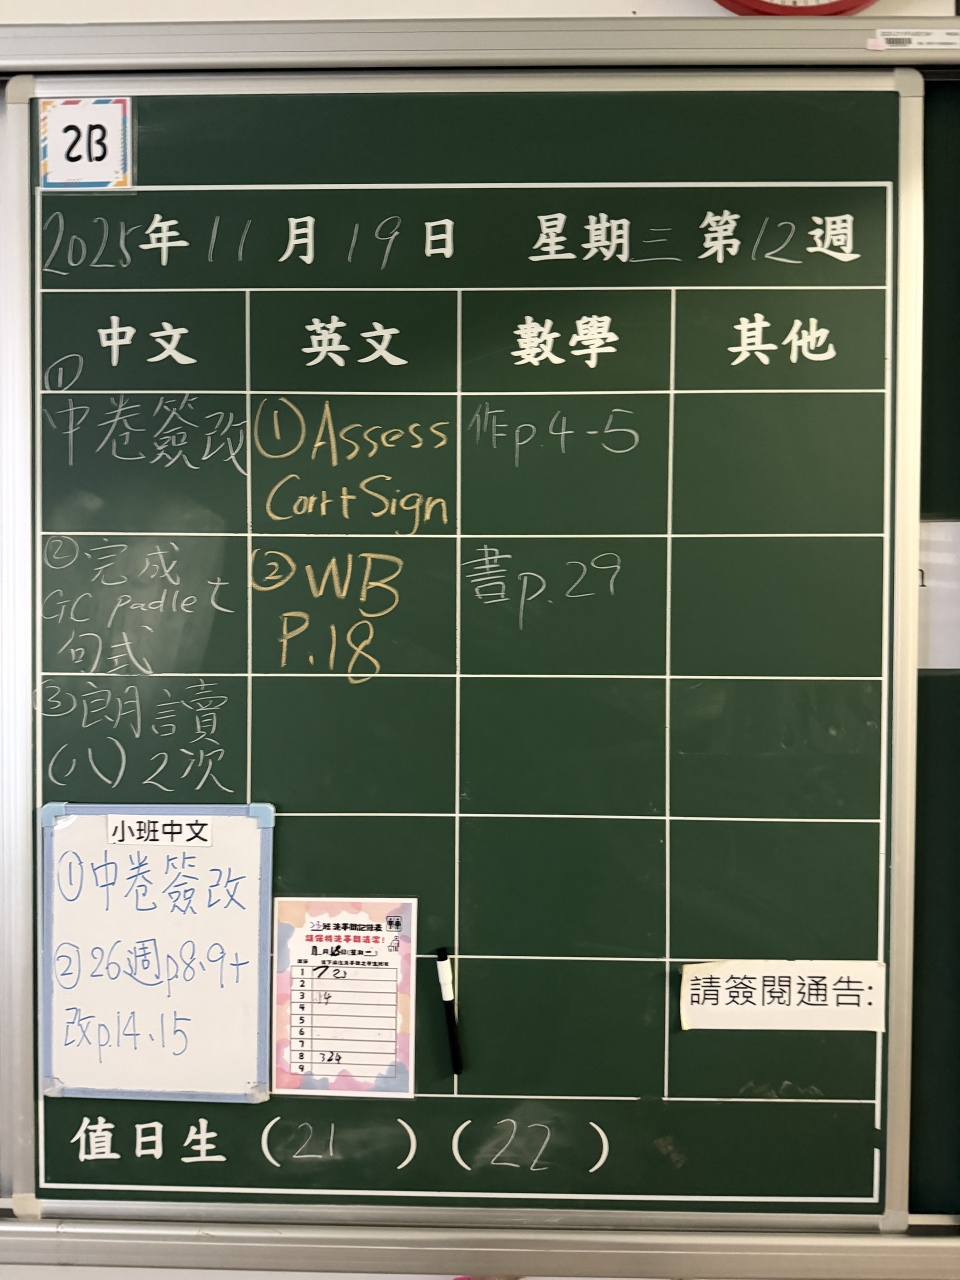 2B
2025年11月19日 星期三第12週
中文 英文 數學 其他
①
中卷簽改
①Assess
Corr+Sign
作p.4-5
②完成
GC padlet
句式
②WB
P.18
書p.29
③朗讀
(八)2次
小班中文
①中卷簽改
②26週p8、9+
改p.14、15
請保持洗手間清潔!
1
2
3 14
4
5
6
7
8
9
請簽閱通告:
值日生(21)(22)